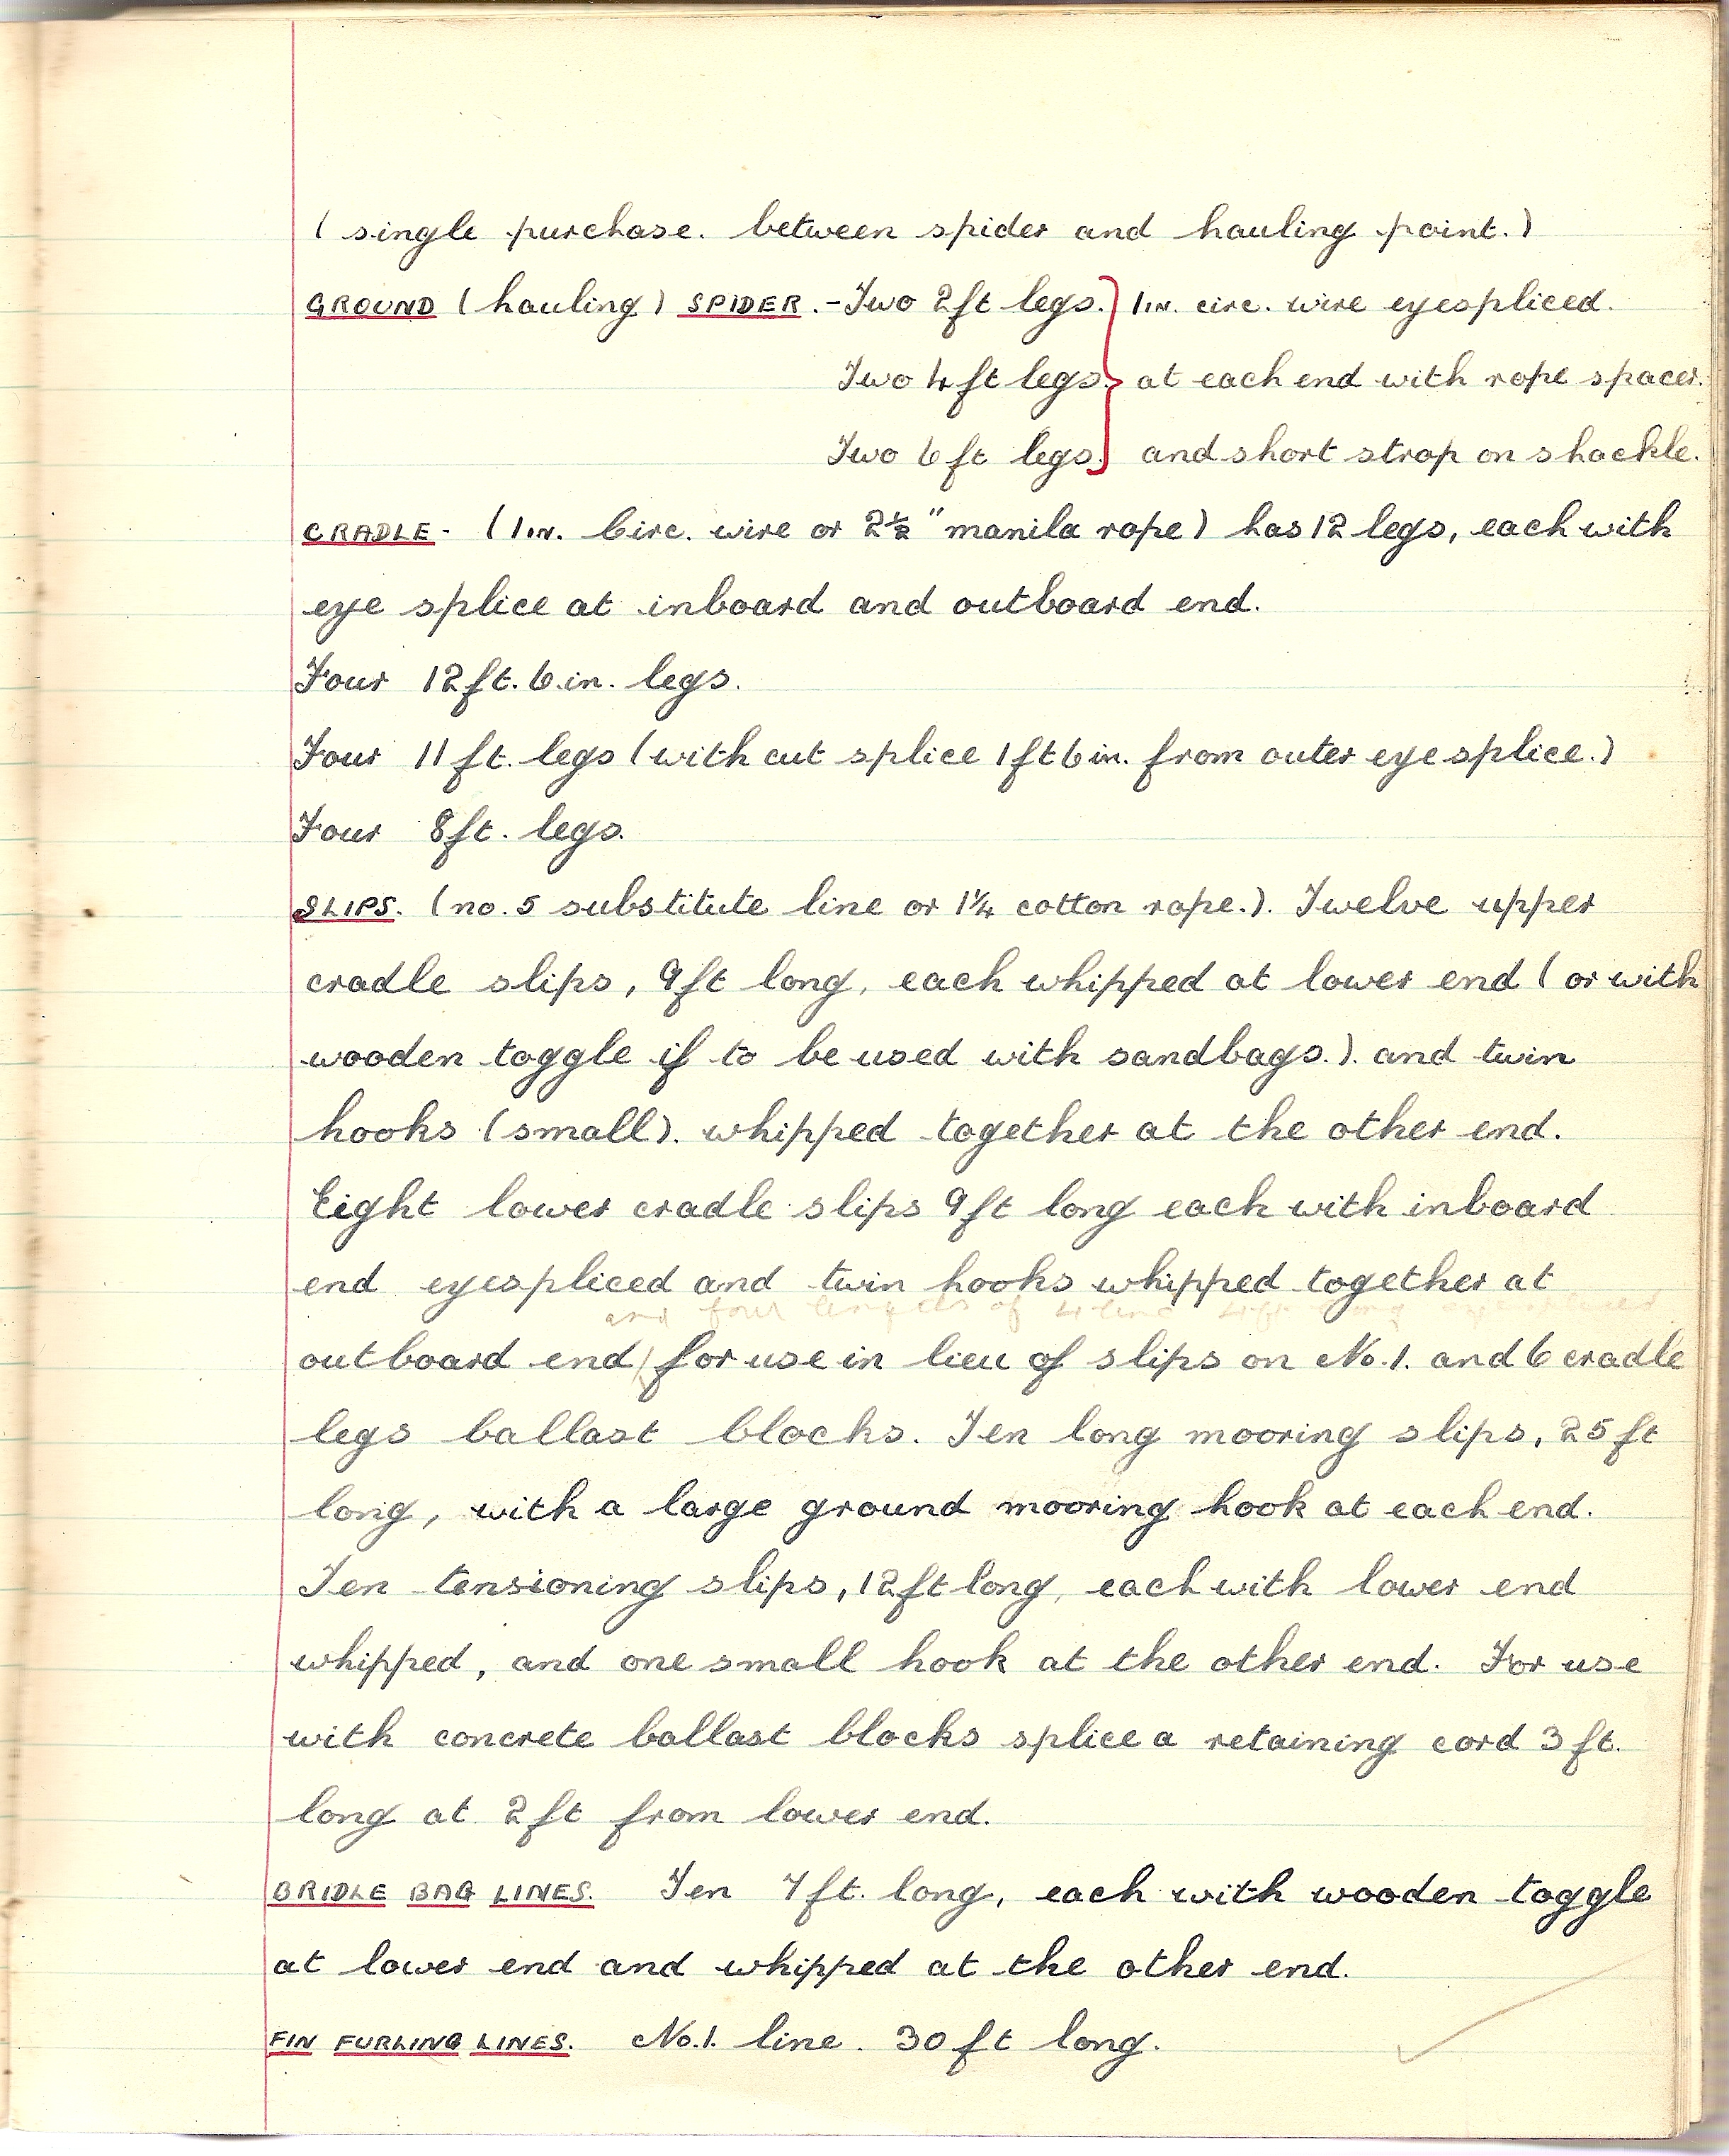 ( single purchase. between spider and hauling point.)
GROUND (hauling) SPIDER.-Two 2ft legs. } 1IN. circ. wire eyespliced.
Two 4ft legs. } at each end with rope spacer.
Two 6ft legs. } and short strop on shackle.
CRADLE- (1IN. Circ. wire or 2½" manila rope) has 12 legs, each with
eye splice at inboard and outboard end.
Four 12ft. 6.in. legs.
Four 11ft. legs (with cut splice 1ft 6in. from outer eyesplice.)
Four 8ft. legs.
SLIPS. (no. 5 substitute line or 1¼ cotton rope.). Twelve upper
cradle slips, 9ft long, each whipped at lower end ( or with
wooden toggle if to be used with sandbags.). and twin
hooks (small). whipped together at the other end.
Eight lower cradle slips 9ft long each with inboard
end eyespliced and twin hooks whipped together at
and four lengths of
outboard end/ for use in lieu of slips on No.1. and 6 cradle
legs ballast blocks. Ten long mooring slips, 25ft
long, with a large ground mooring hook at each end.
Ten tensioning slips, 12ft long, each with lower end
whipped, and one small hook at the other end. For use
with concrete ballast blocks splice a retaining cord 3ft.
long at 2ft from lower end.
BRIDLE BAG LINES. Ten 7ft. long, each with wooden toggle
at lower end and whipped at the other end.
FIN FURLING LINES. No.1. line. 30ft long.